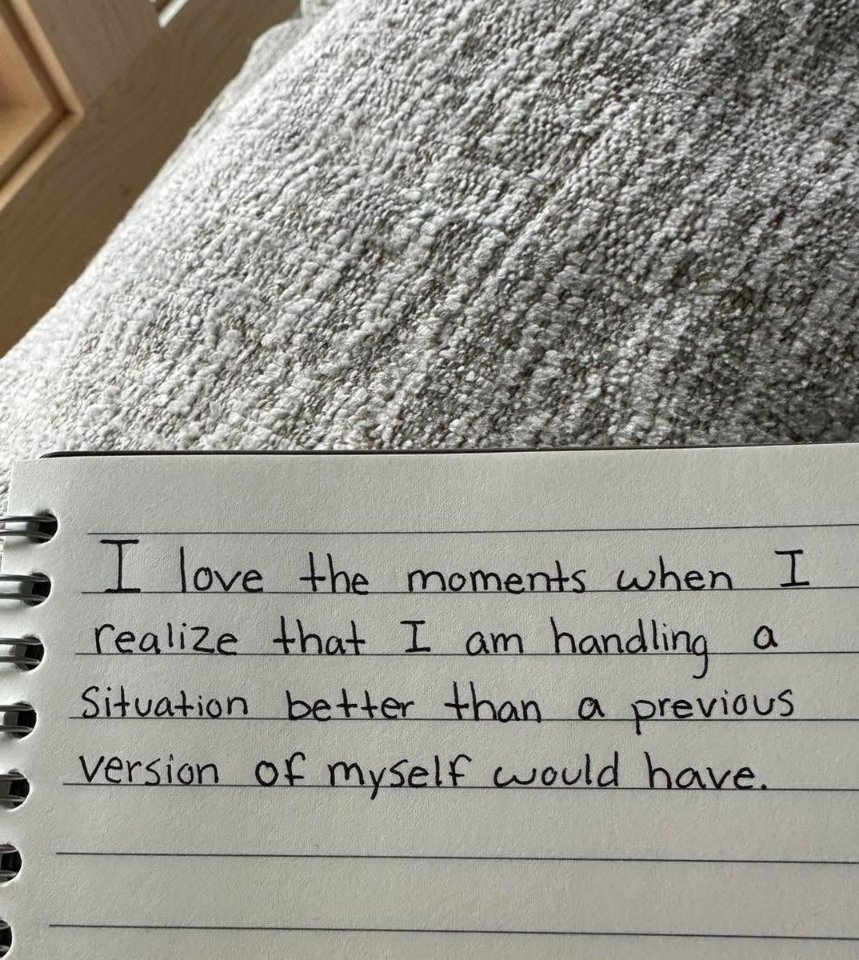 I love the moments when I
realize that I am handling a
situation better than a previous
version of myself would have.